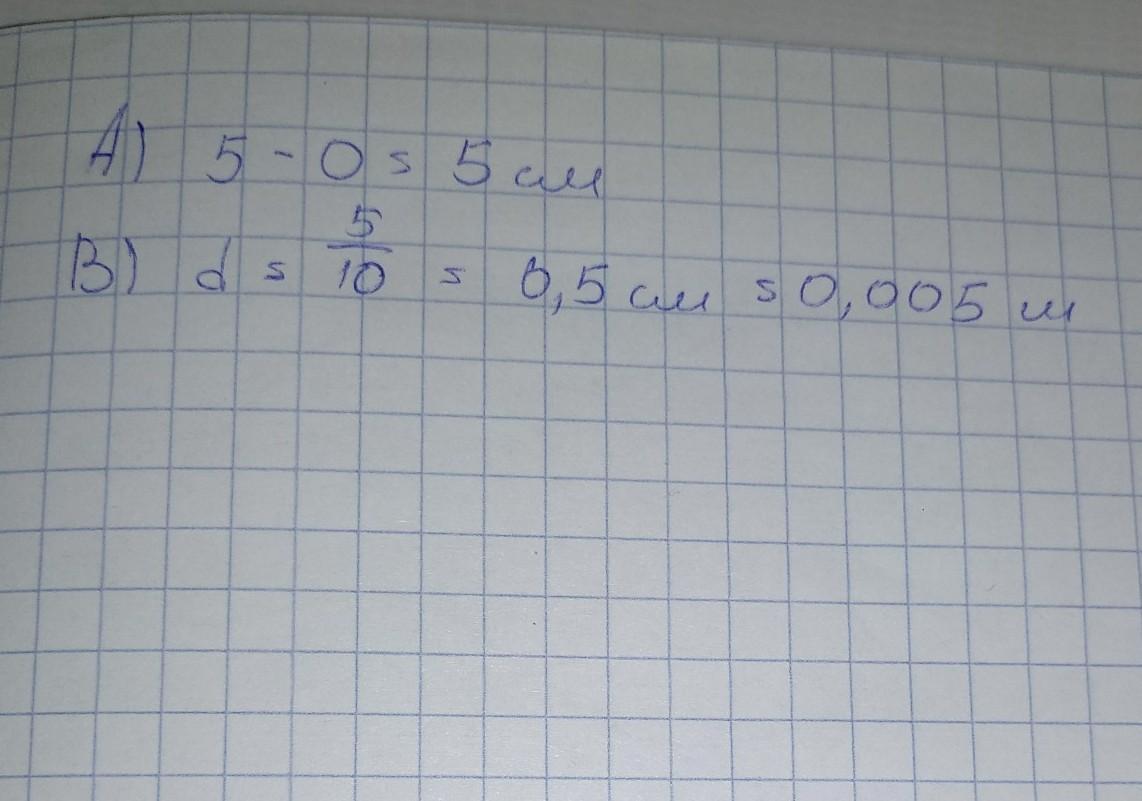 А) 5 - 0 = 5 см
В) d = 5/10 = 0,5 см = 0,005 м